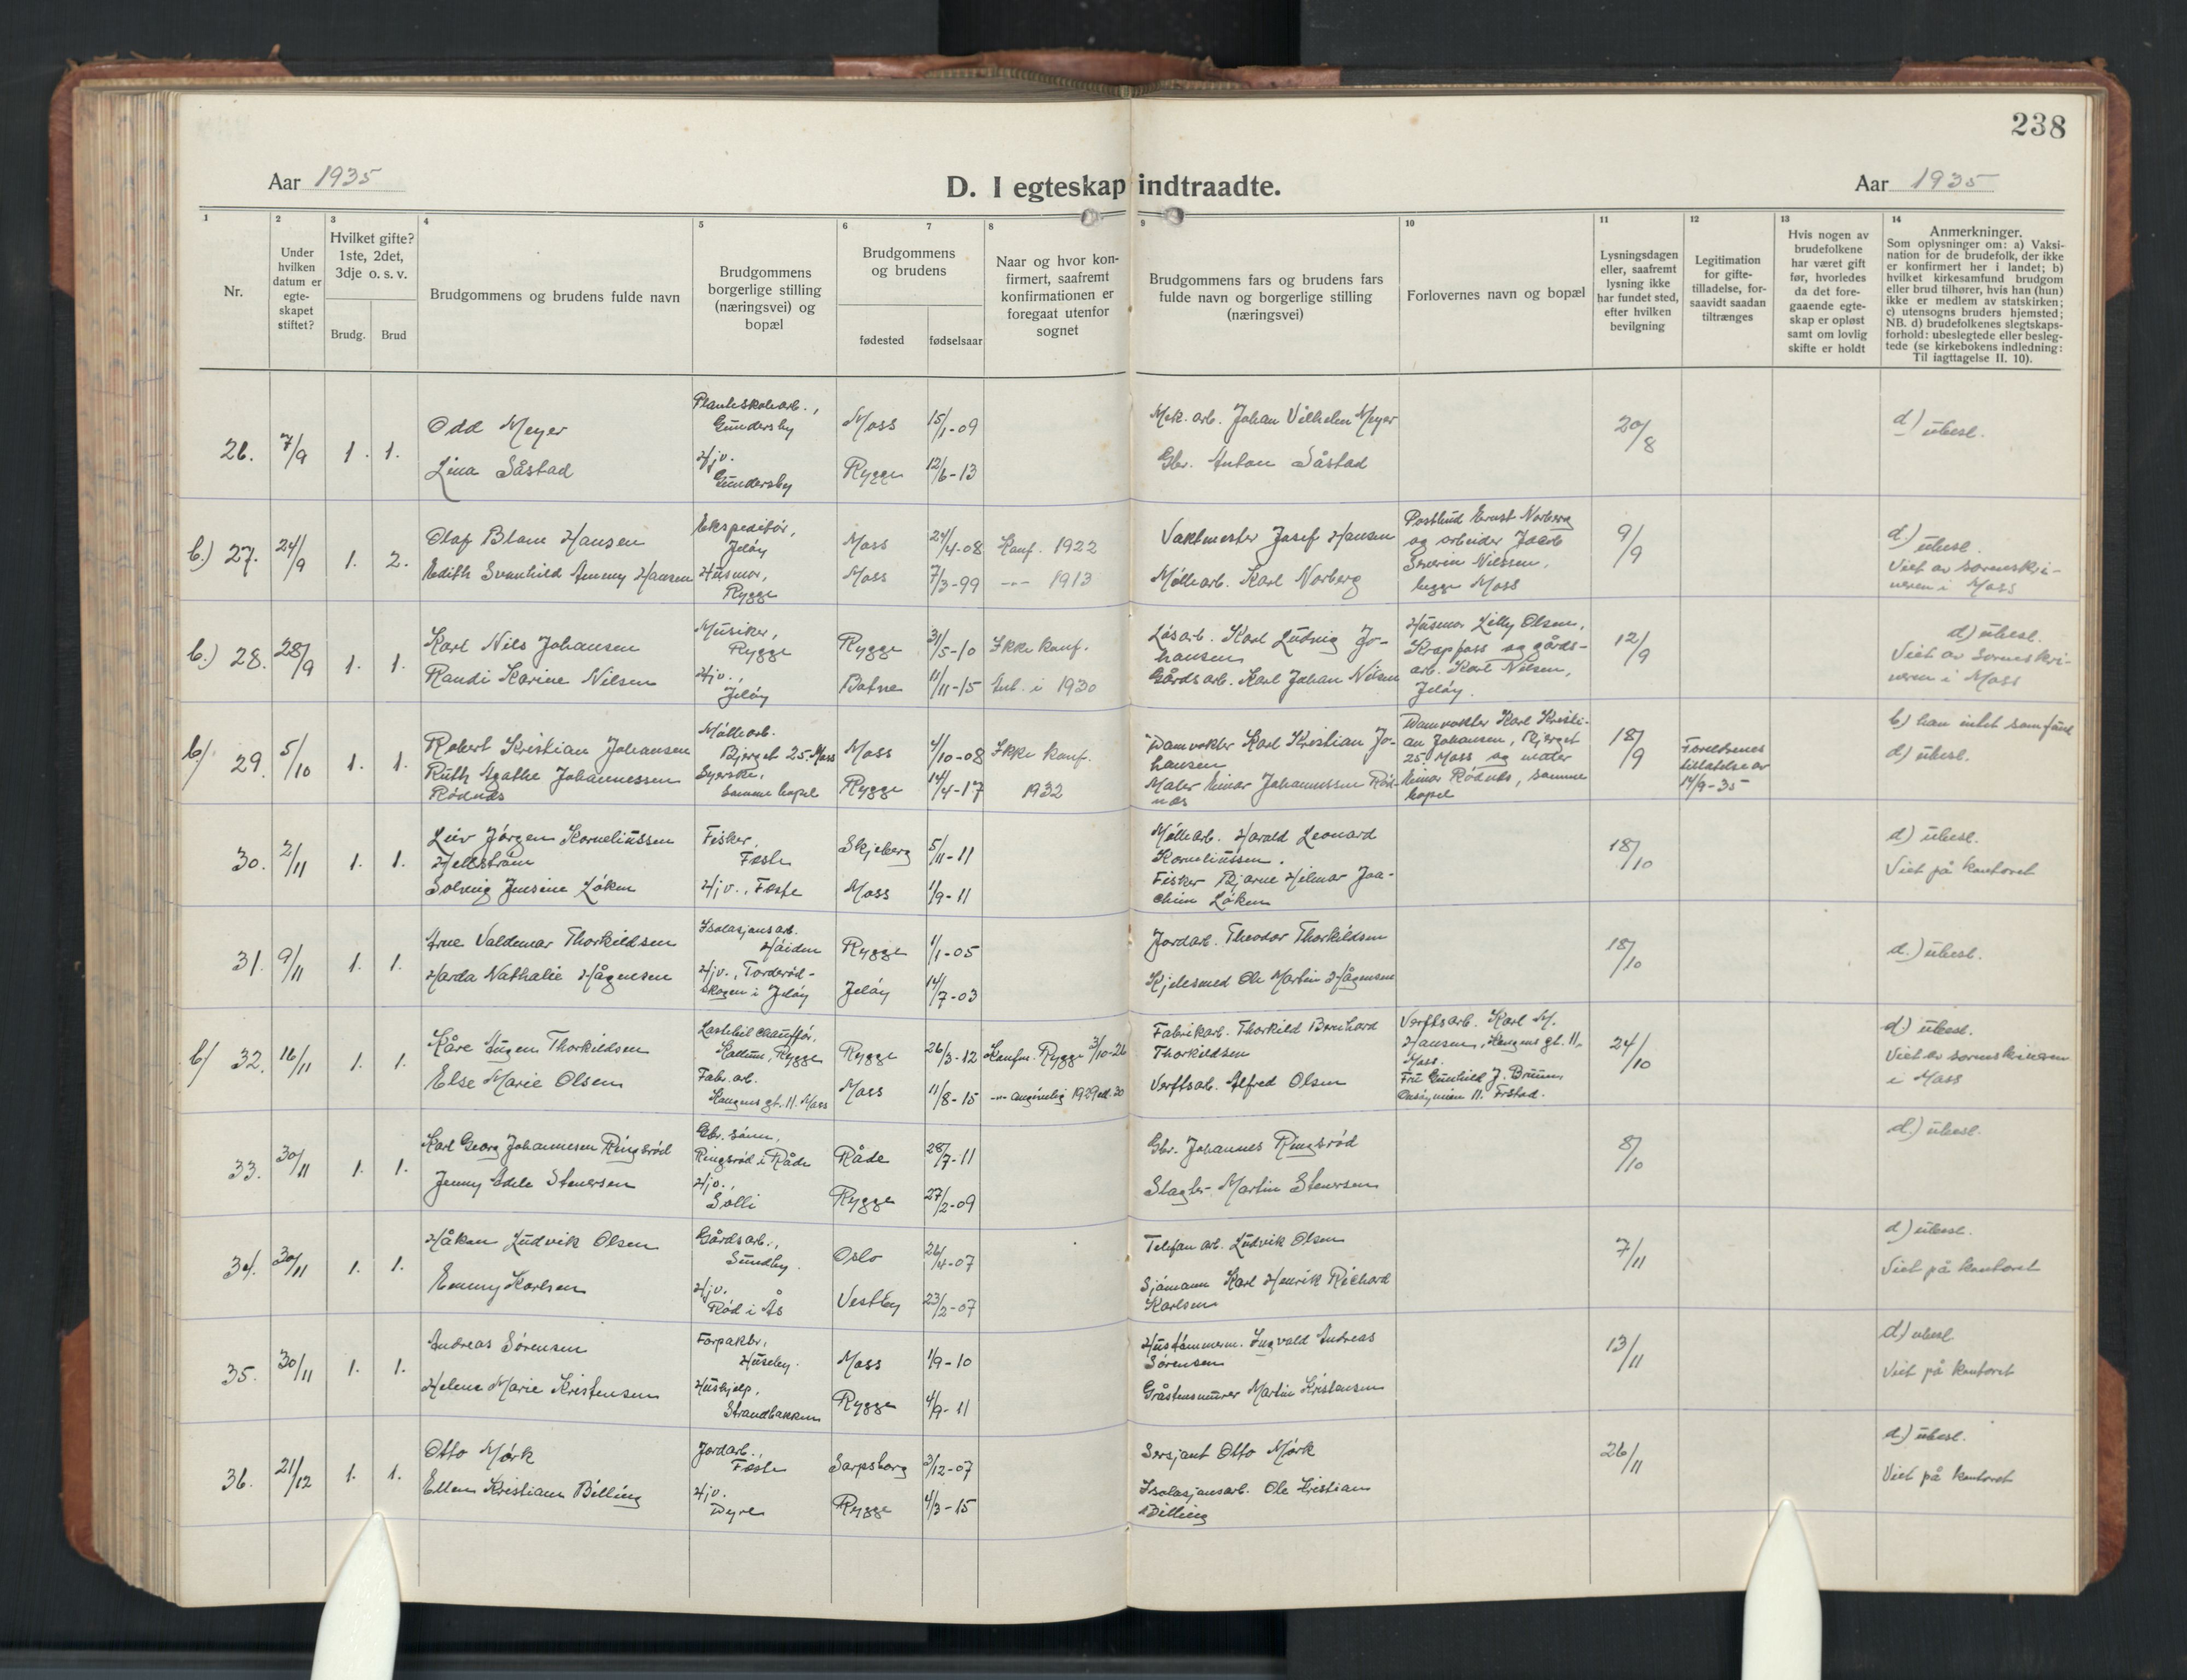 238
Aar 1935
D. I egteskap indtraadte.
Aar 1935
1
2
3
4
5
6
7
8
9
10
11
12
13
14
Nr.
Under
hvilken
datum er
egte-
skapet
stiftet?
Hvilket gifte?
1ste, 2det,
3dje o. s. v.
Brudg.
Brud
Brudgommens og brudens fulde navn
Brudgommens
borgerlige stilling
(næringsvei) og
bopæl
Brudgommens
og brudens
fødested
fødselsaar
Naar og hvor kon-
firmert, saafremt
konfirmationen er
foregaat utenfor
sognet
Brudgommens fars og brudens fars
fulde navn og borgerlige stilling
(næringsvei)
Forlovernes navn og bopæl
Lysningsdagen
eller, saafremt
lysning ikke
har fundet sted,
efter hvilken
bevilgning
Legitimation
for gifte-
tilladelse, for-
saavidt saadan
tiltrænges
Hvis nogen av
brudefolkene
har været gift
før, hvorledes
da det fore-
gaaende egte-
skap er opløst
samt om lovlig
skifte er holdt
Anmerkninger.
Som oplysninger om: a) Vaksi-
nation for de brudefolk, der ikke
er konfirmert her i landet; b)
hvilket kirkesamfund brudgom
eller brud tilhører, hvis han (hun)
ikke er medlem av statskirken;
c) utensogns bruders hjemsted;
NB. d) brudefolkenes slegtskaps-
forhold: ubeslegtede eller besleg-
tede (se kirkebokens indledning:
Til iagttagelse II. 10).
26. 7/9 1. 1.
Odd Meyer
Lina Såstad
Planteskolearb.,
Gundersby
Hjv.
Gundersby
Moss 15/1-09
Rygge 12/6-13
Mek. arb. Johan Vilhelm Meyer
Gbr. Anton Såstad
20/8
d) ubesl.
b.) 27. 24/9 1. 2.
Olaf Blom Hansen
Edith Svanhild Ammy Hansen
Ekspeditør,
Jeløy
Husmor,
Rygge
Moss 24/4-08 Konf. 1922
Moss 7/3-99 -"- 1913
Vaktmester Josef Hansen
Møllearb. Karl Norberg
Postbud Ernst Norberg
og arbeider Jacob
Severin Nilssen,
begge Moss
9/9
d) ubesl.
Viet av sorenskri-
veren i Moss
b.) 28. 28/9 1. 1.
Karl Nils Johansen
Randi Karine Nilsen
Musiker,
Rygge
Hjv.,
Jeløy
Rygge 31/5-10 Ikke konf.
Botne 11/11-15 Ant. i 1930
Løsarb. Karl Ludvig Jo-
hansen
Gårdsarb. Karl Johan Nilsen
Husmor Lilly Olsen,
Krapfoss og gårds-
arb. Karl Nilsen,
Jeløy.
12/9
d) ubesl.
Viet av Sorenskri-
veren i Moss
b/ 29. 5/10 1. 1.
Robert Kristian Johansen
Ruth Agathe Johannessen
Rødnæs
Møllearb.
Bjerget 25. Moss
Syerske,
samme bopel
Moss 4/10-08 Ikke konf.
Rygge 14/4-17 1932
Damvokter Karl Kristian Jo-
hansen
Maler Einar Johannessen Rød-
næs
Damvokter Karl Kristi-
an Johansen, Bjerget
25. Moss og maler
Einar Rødnæs, samme
bopel
18/9
Foreldrenes
tillatelse av
14/9-35
b) han intet samfund
d) ubesl.
30. 2/11 1. 1.
Leiv Jørgen Korneliussen
Hellstrøm
Solveig Jensine Løken
Fisker,
Feste
Hjv., Feste
Skjeberg 5/11-11
Moss 1/9-11
Møllearb. Harald Leonard
Korneliussen.
Fisker Bjarne Hilmar Joa-
chim Løken
18/10
d) ubesl.
Viet på kontoret
31. 9/11 1. 1.
Arne Valdemar Thorkildsen
Harda Nathalie Hågensen
Isolasjonsarb.
Høiden
Hjv., Torderød-
skogen i Jeløy
Rygge 1/1-05
Jeløy 14/7-03
Jordarb. Theodor Thorkildsen
Kjelesmed Ole Martin Hågensen
18/10
d.) ubesl.
b/ 32. 16/11 1. 1.
Kåre Eugen Thorkildsen
Else Marie Olsen
Lastebilchauffør,
Kallum, Rygge
Fabr. arb.
Kongens gt. 11. Moss
Rygge 26/3-12 Konfm. Rygge 3/10-26
Moss 11/8-15 -"- angivelig 1929 ell. 30
Fabrikarb. Thorkild Bernhard
Thorkildsen
Verftsarb. Alfred Olsen
Verftsarb. Karl M.
Hansen, Kongens gt. 11,
Moss.
Fru Gunhild J. Bruun,
11. Frstad.
24/10
d) ubesl.
Viet av sorenskriveren
i Moss
33. 30/11 1. 1.
Karl Georg Johannesen Ringsrød
Jenny Edele Stenersen
Gbr. sønn,
Ringsrød i Råde
Hjv.,
Solli
Råde 28/7-11
Rygge 27/2-09
Gbr. Johannes Ringsrød
Slagter Martin Stenersen
8/10
d.) ubesl.
34. 30/11 1. 1.
Håkon Ludvik Olsen
Emmy Karlsen
Gårdsarb.,
Sundby.
Hjv.
Rød i Ås
Oslo 26/4-07
Vestby 23/2-07
Telefon arb. Ludvik Olsen
Sjømann Karl Henrik Richard
Karlsen
7/11
d) ubesl.
Viet på kontoret
35. 30/11 1. 1.
Andreas Sørensen
Helene Marie Kristensen
Forpakter,
Huseby.
Hushjelp,
Strandbakken
Moss 1/9-10
Rygge 4/9-11
Hustømmerm. Ingvald Andreas
Sørensen
Gråstensmurer Martin Kristensen
13/11
d) ubesl.
Viet på kontoret
36. 21/12 1. 1.
Otto Mørk
Ellen Kristiane Billing
Jordarb.,
Feste
Hjv.
Dyre
Sarpsborg 3/12-07
Rygge 4/3-15
Sersjant Otto Mørk
Isolasjonsarb. Ole Kristian
Billing
26/11
d) ubesl.
Viet på kontoret